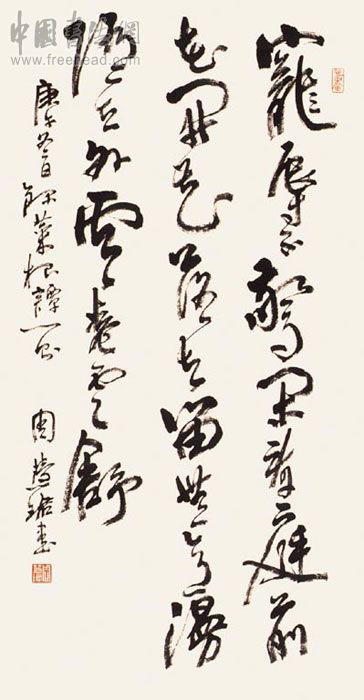 中國書法網
www.freehead.com
寵辱不驚閑看庭前
花開花落去留無意漫
隨天外雲卷雲舒
庚午冬日錄菜根譚一則 周慧珺書